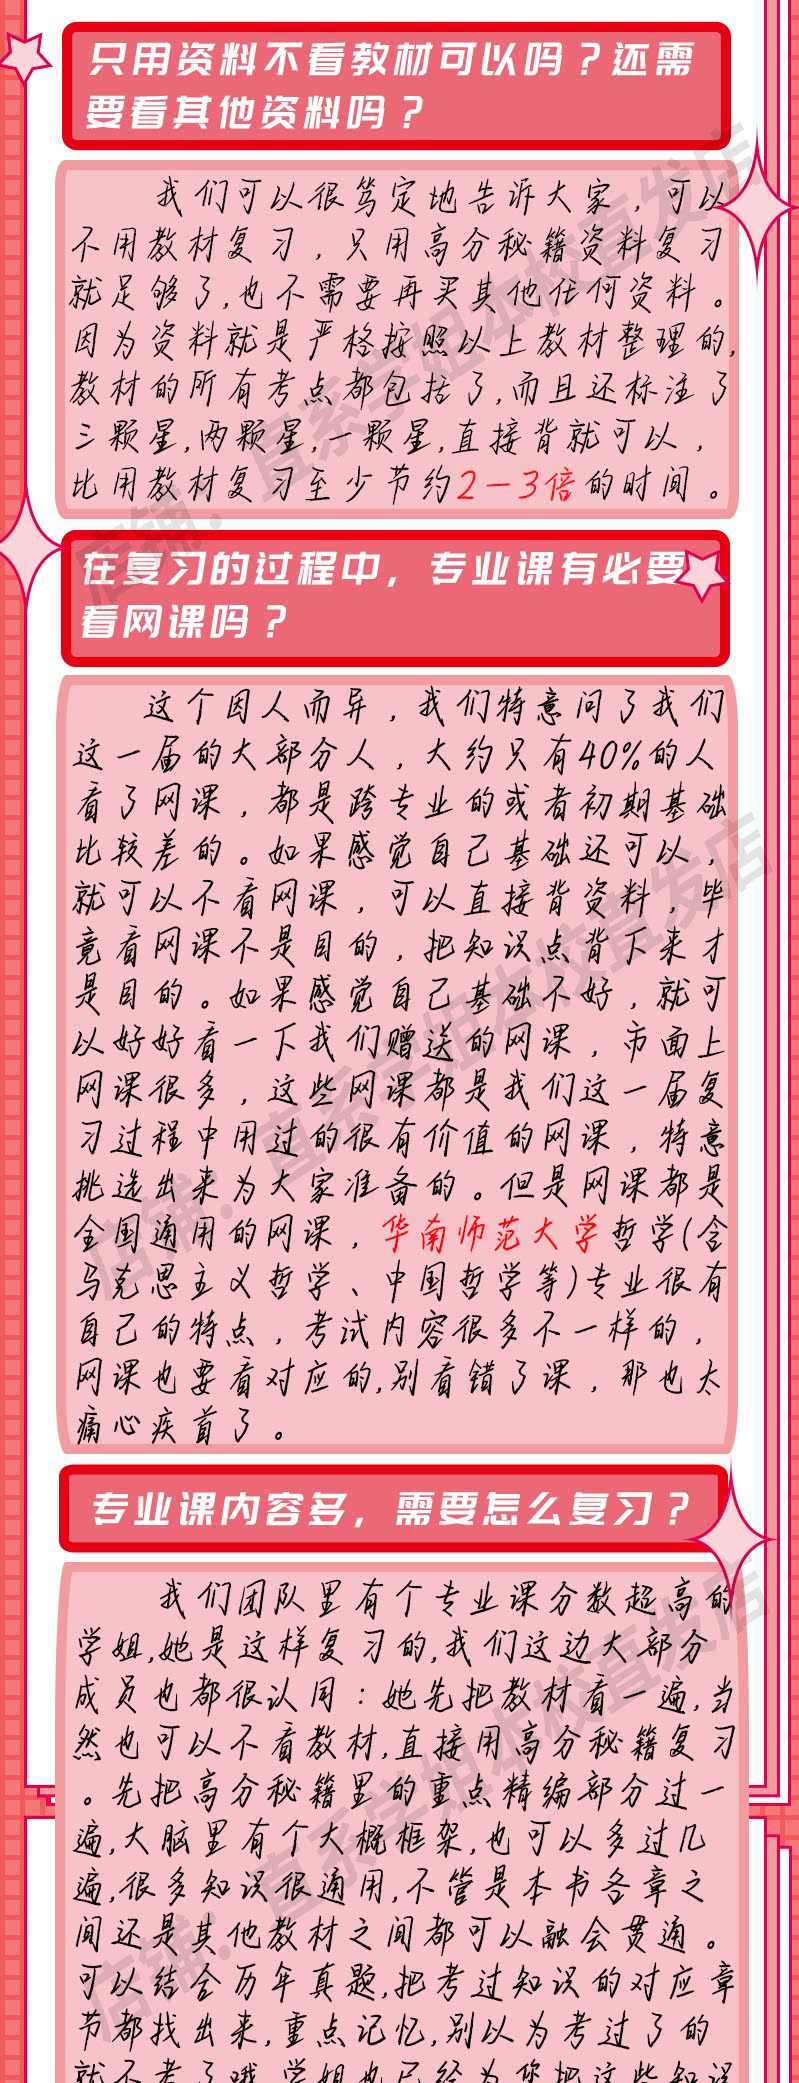 只用资料不看教材可以吗？还需
要看其他资料吗？
我们可以很笃定地告诉大家，可以
不用教材复习，只用高分秘籍资料复习
就足够了,也不需要再买其他任何资料。
因为资料就是严格按照以上教材整理的,
教材的所有考点都包括了,而且还标注了
三颗星,两颗星,一颗星,直接背就可以，
比用教材复习至少节约2-3倍的时间。
在复习的过程中，专业课有必要
看网课吗？
这个因人而异，我们特意问了我们
这一届的大部分人，大约只有40%的人
看了网课，都是跨专业的或者初期基础
比较差的。如果感觉自己基础还可以，
就可以不看网课，可以直接背资料，毕
竟看网课不是目的，把知识点背下来才
是目的。如果感觉自己基础不好，就可
以好好看一下我们赠送的网课，市面上
网课很多，这些网课都是我们这一届复
习过程中用过的很有价值的网课，特意
挑选出来为大家准备的。但是网课都是
全国通用的网课，华南师范大学哲学(含
马克思主义哲学、中国哲学等)专业很有
自己的特点，考试内容很多不一样的，
网课也要看对应的,别看错了课，那也太
痛心疾首了。
专业课内容多，需要怎么复习？
我们团队里有个专业课分数超高的
学姐,她是这样复习的,我们这边大部分
成员也都很认同：她先把教材看一遍,当
然也可以不看教材,直接用高分秘籍复习
。先把高分秘籍里的重点精编部分过一
遍,大脑里有个大概框架,也可以多过几
遍,很多知识很通用,不管是本书各章之
间还是其他教材之间都可以融会贯通。
可以结合历年真题,把考过知识的对应章
节都找出来,重点记忆,别以为考过了的
就不考了哦,学姐也已经为您把这些知识
店铺：直系学姐本校直发店
店铺：直系学姐本校直发店
店铺：直系学姐本校直发店